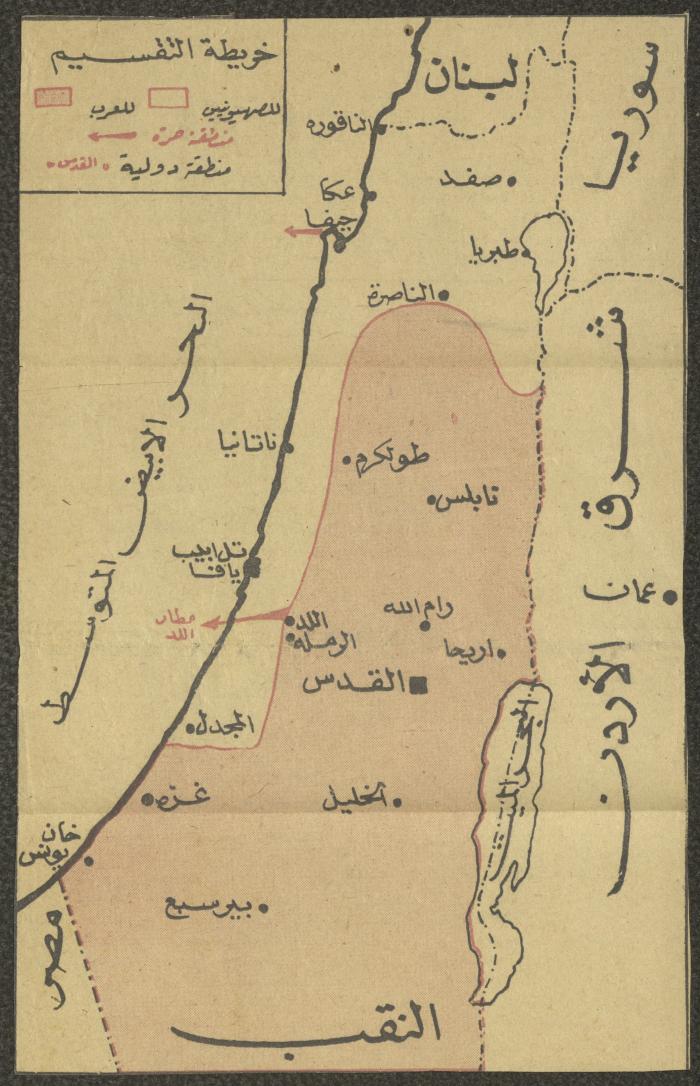 خريطة التقسيم
للصهيونيين للعرب
منطقة حرة
منطقة دولية • القدس •
لبنان
سوريا
الناقوره
صفد
عكا
حيفا
طبريا
الناصرة
شرق الأردن
البحر الابيض المتوسط
ناتانيا
طولكرم
نابلس
تل ابيب
يافا
عمان
رام الله
مطار
اللد
اللد
الرمله
اريحا
القدس
المجدل
البحر الميت
غزه
الخليل
خان
يونس
بير سبع
مصر
النقب